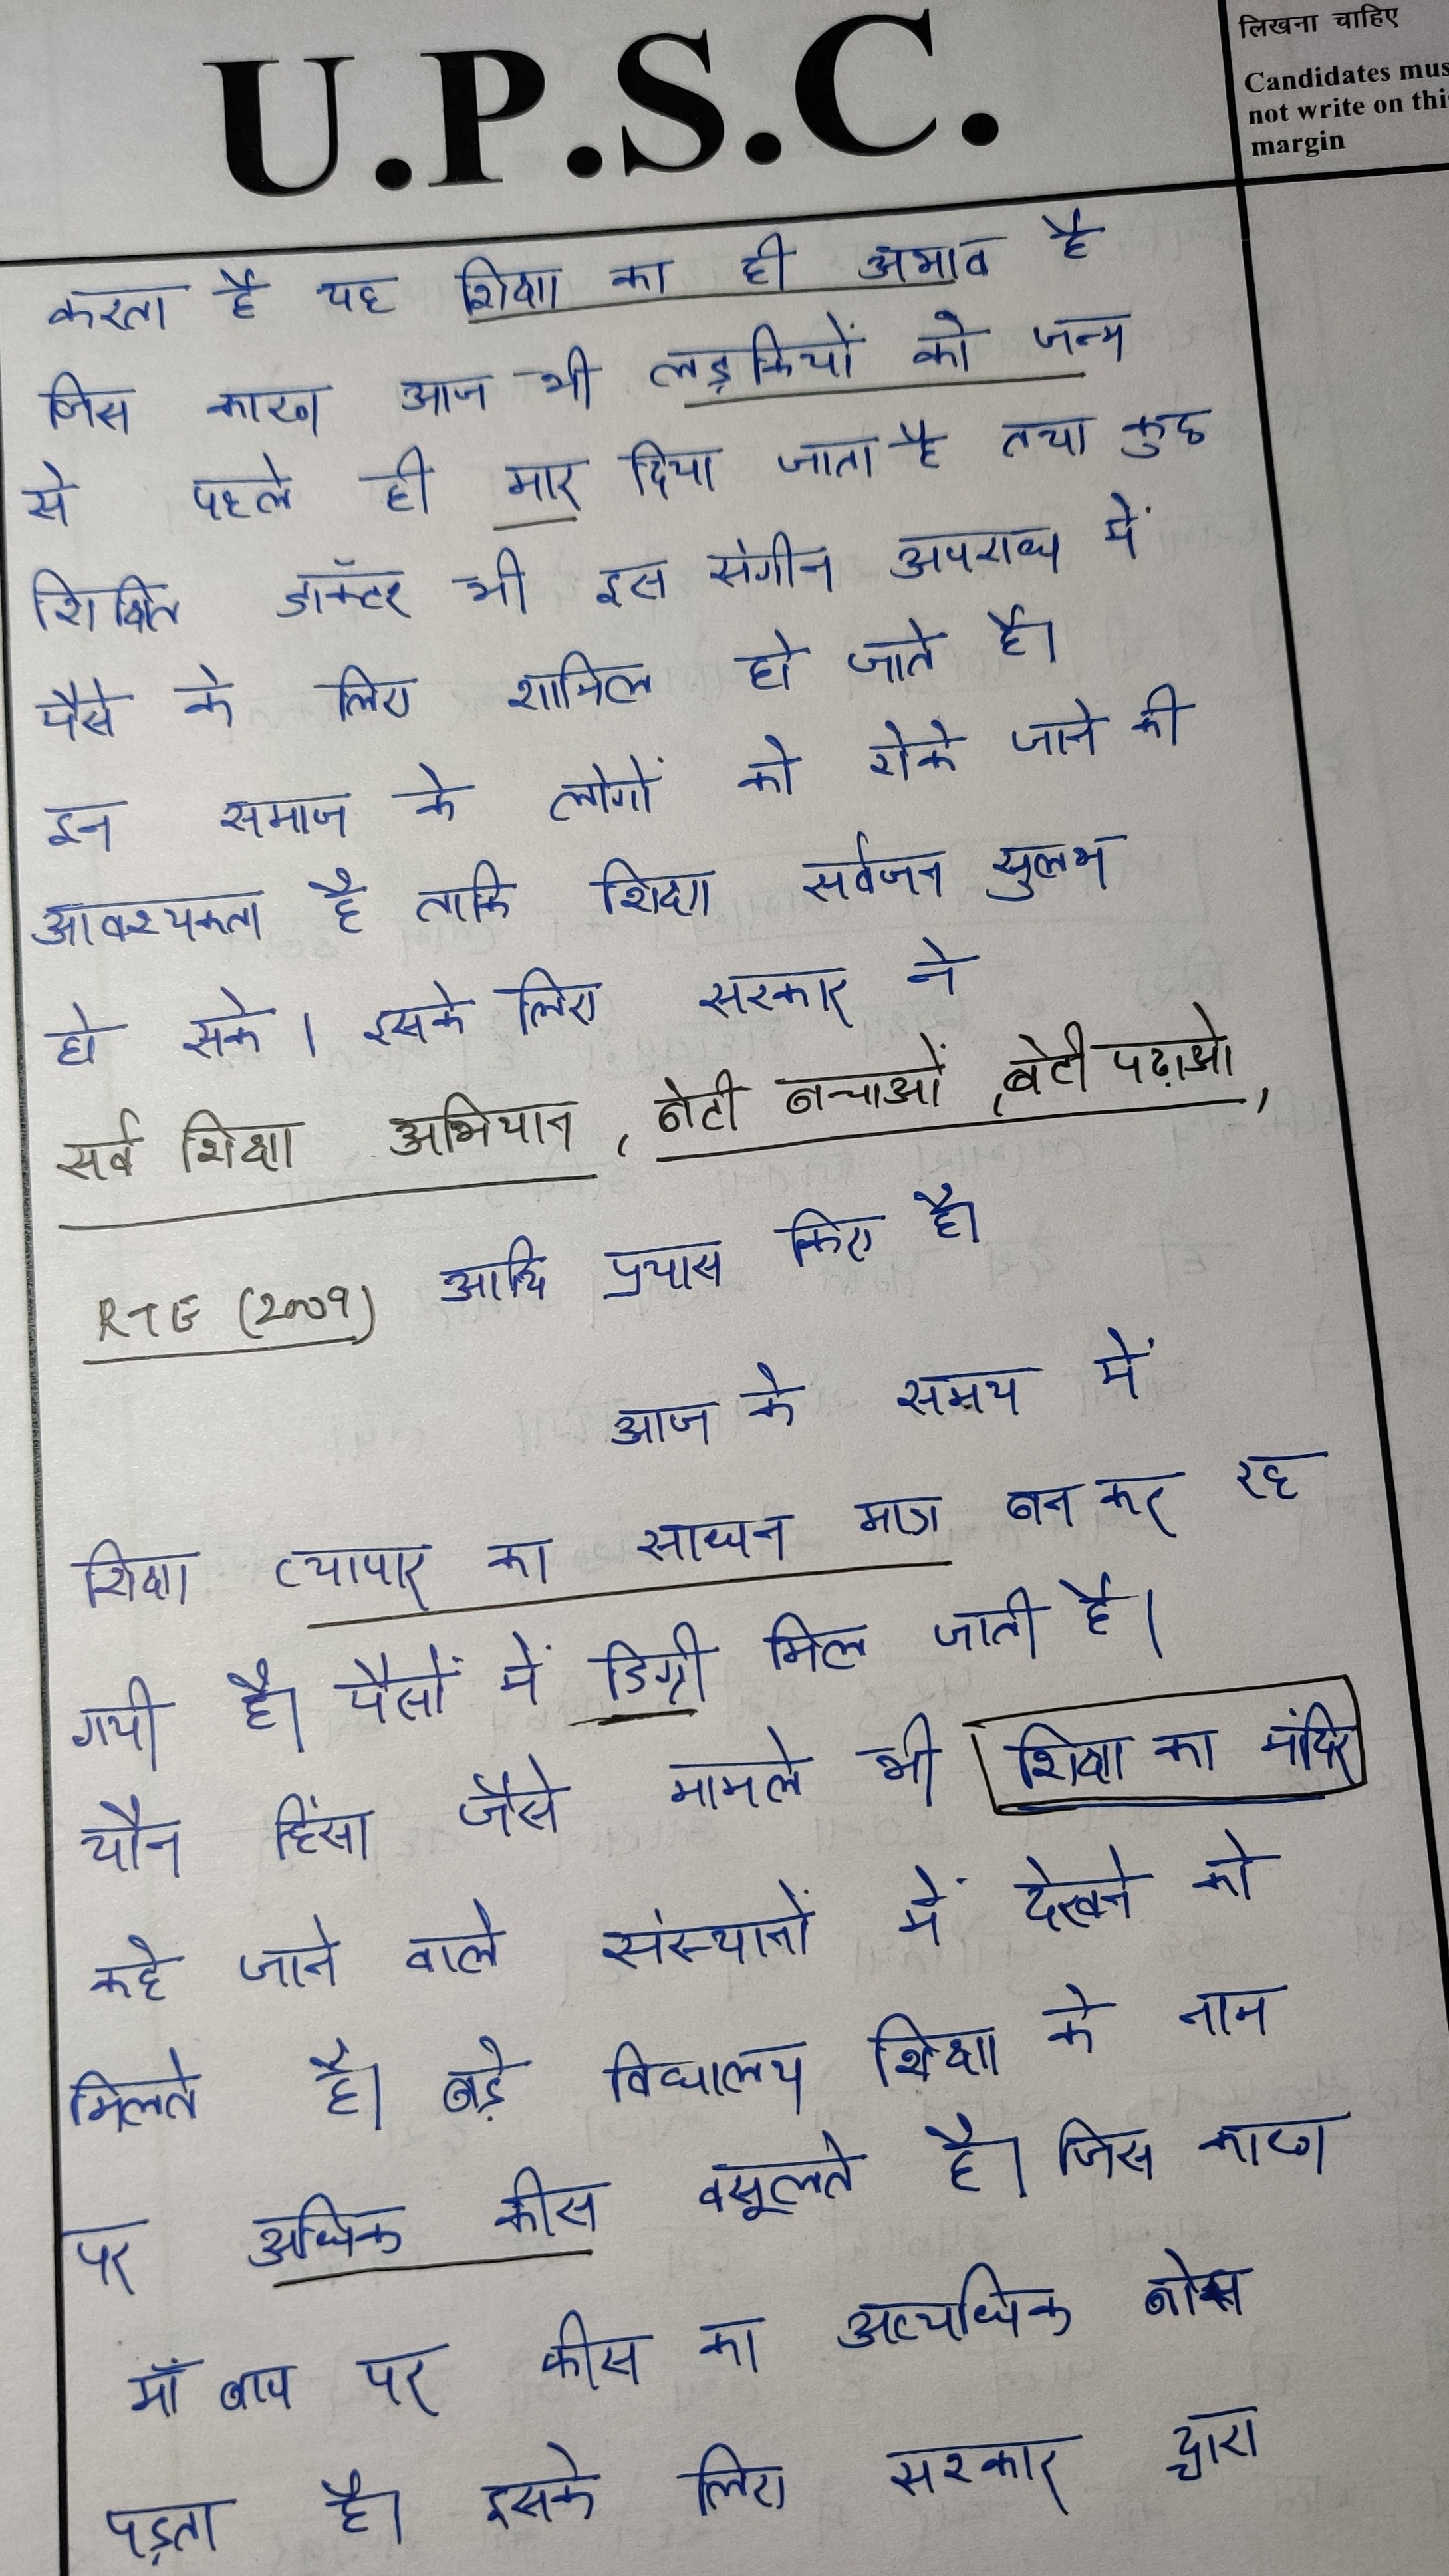 U.P.S.C.
लिखना चाहिए
Candidates mus
not write on this
margin
करता है यह शिक्षा का ही अभाव है
जिस कारण आज भी लड़कियों को जन्म
से पहले ही मार दिया जाता है तथा कुछ
शिक्षित डॉक्टर भी इस संगीन अपराध में
पैसे के लिए शामिल हो जाते है।
इन समाज के लोगों को रोके जाने की
आवश्यकता है ताकि शिक्षा सर्वजन सुलभ
हो सके। इसके लिए सरकार ने
सर्व शिक्षा अभियान, बेटी बचाओं, बेटी पढ़ाओ,
RTE (2009) आदि प्रयास किए है।
आज के समय में
शिक्षा व्यापार का साधन मात्र बन कर रह
गयी है। पैसों में डिग्री मिल जाती है।
यौन हिंसा जैसे मामले भी शिक्षा का मंदिर
कहे जाने वाले संस्थानों में देखने को
मिलते है। बड़े विद्यालय शिक्षा के नाम
पर अधिक फीस वसूलते है। जिस कारण
माँ बाप पर फीस का अत्यधिक बोझ
पड़ता है। इसके लिए सरकार द्वारा